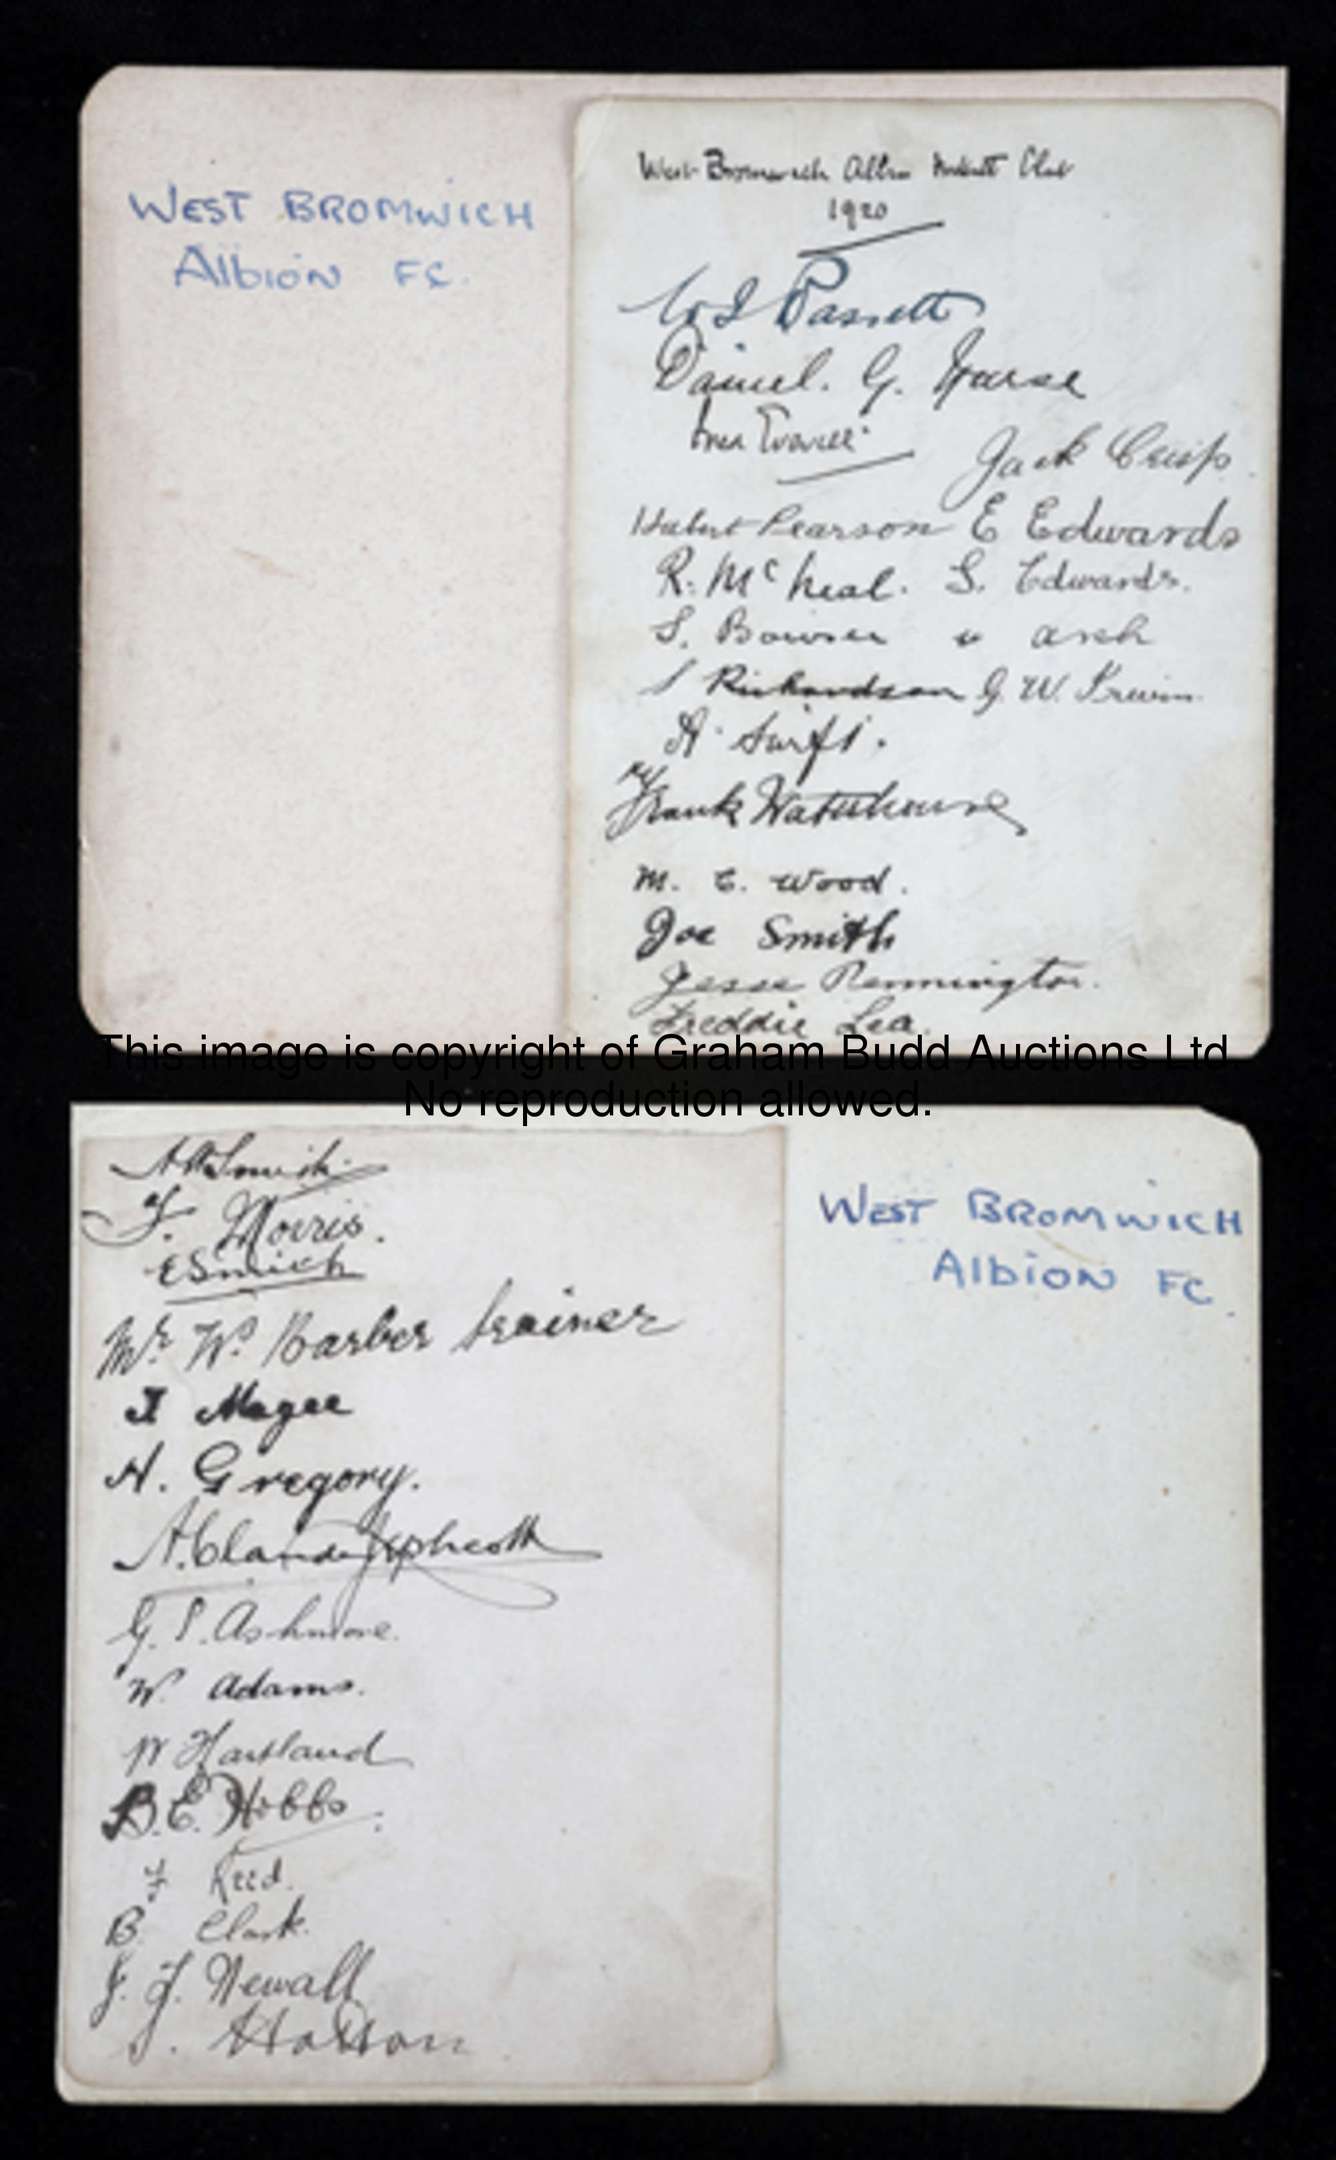 WEST BROMWICH
Albion FC.
West Bromwich Albion Football Club
1920
W I Bassett
Daniel. G. Nurse
Fred Everiss
Jack Crisp.
Hubert Pearson E Edwards
R. McNeal. S. Edwards.
S. Bowser W Ash
S Richardson G. W. Irwin.
A. Swift.
Frank Waterhouse
M. C. Wood.
Joe Smith
Jesse Pennington.
Freddie Lea.
This image is copyright of Graham Budd Auctions Ltd.
No reproduction allowed.
A W Smith
F. Morris.
E Smith
Mr. W. Barber trainer
T Magee
H. Gregory.
A. Claude Jephcott
G. S. Ashmore.
W. Adams.
W Hartland
B. E. Hobbs.
F Reed.
B. Clark.
J. F. Newall
J. Hatton
WEST BROMWICH
Albion FC.